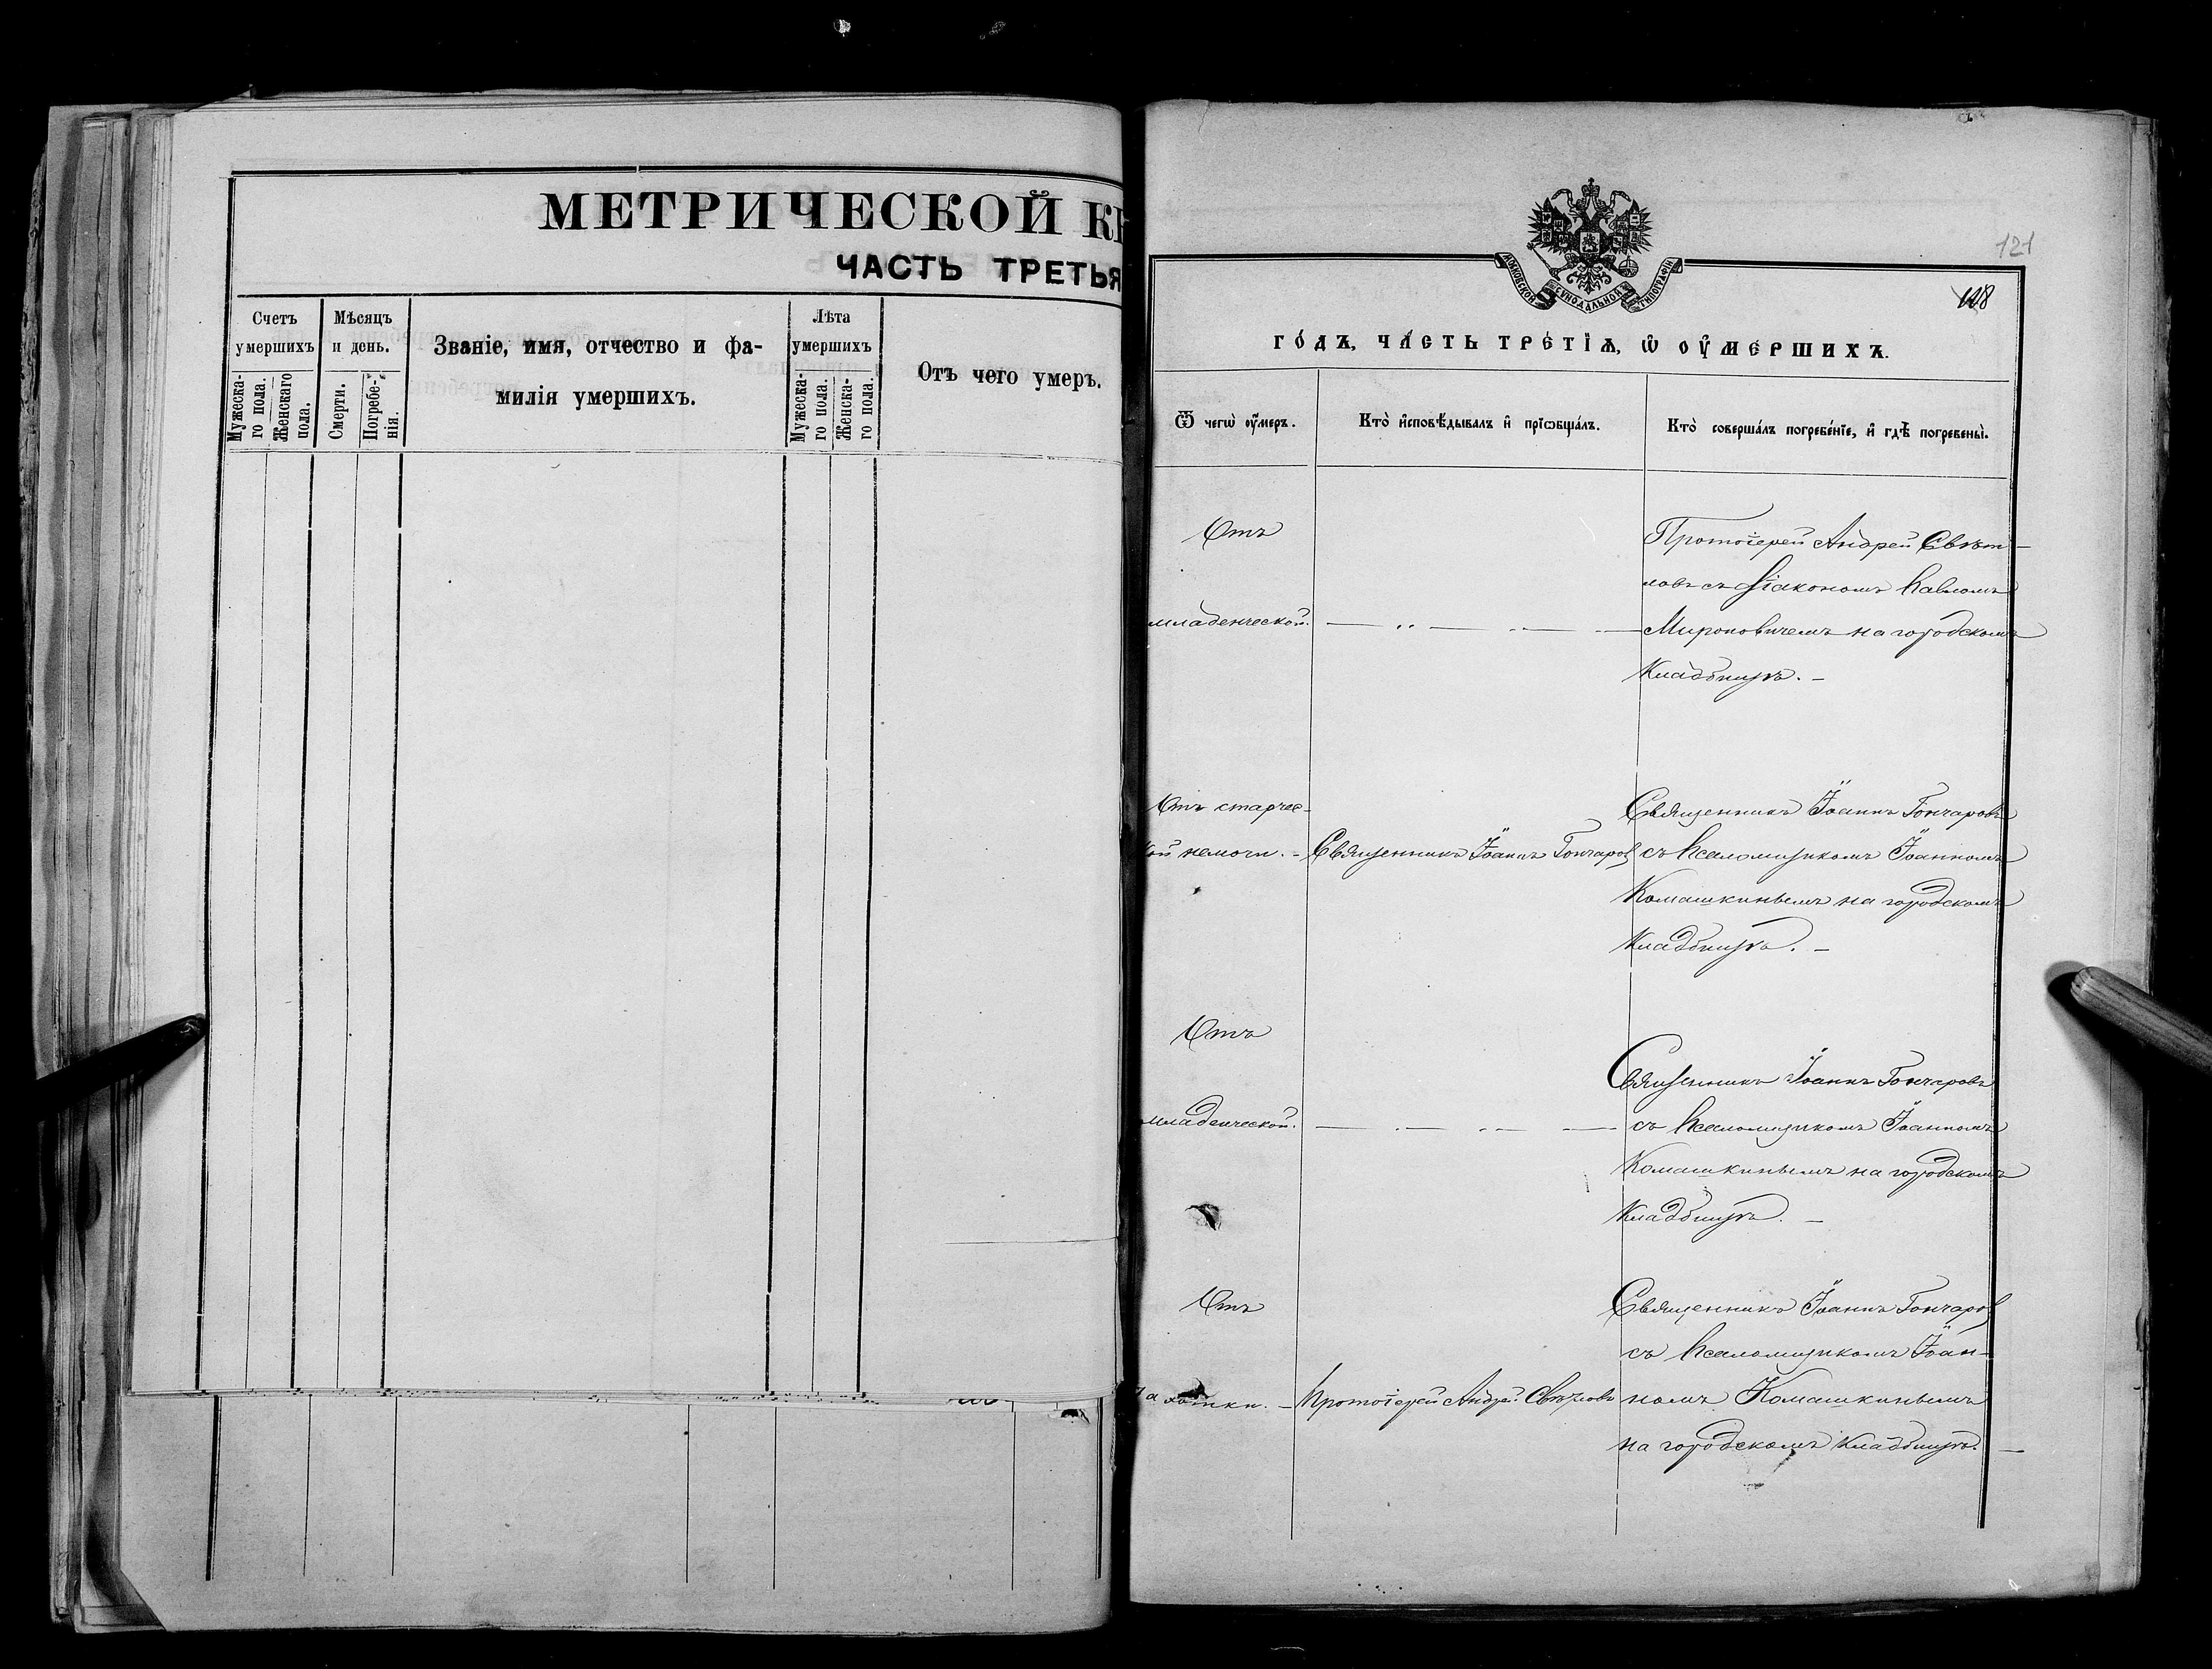 МЕТРИЧЕСКОЙ КН
ЧАСТЬ ТРЕТЬЯ
Счетъ умершихъ
Мужескаго пола.
Женскаго пола.
Мѣсяцъ и день.
Смерти.
Погребенія.
Званіе, имя, отчество и фа-
милія умершихъ.
Лѣта умершихъ
Мужескаго пола.
Женскаго пола.
Отъ чего умеръ.
МОСКОВСКОЙ СѴНОДАЛЬНОЙ ТИПОГРАФІИ
121
118
го́дъ, ча́сть тре́тїѧ, ѡ҆ ᲂу҆ме́ршихъ.
Ѿ чегѡ̀ ᲂу҆́меръ.
Кто̀ и҆сповѣ́дывалъ и҆ прїѡбща́лъ.
Кто̀ соверша́лъ погребе́нїе, и҆ гдѣ̀ погребены̀.
Отъ
младенческой.
Протоіерей Андрей Свѣт-
ловъ съ Діакономъ Павломъ
Мироновичемъ на городскомъ
Кладбищѣ. –
Отъ старчес-
кой немочи. –
Священникъ Іоаннъ Гончаров
Священникъ Іоаннъ Гончаровъ
съ Псаломщикомъ Іоанномъ
Комашкинымъ на городскомъ
Кладбищѣ. –
Отъ
младенческой.
Священникъ Іоаннъ Гончаровъ
съ Псаломщикомъ Іоанномъ
Комашкинымъ на городскомъ
Кладбищѣ. –
Отъ
чахотки. –
Протоіерей Андрей Свѣтловъ
Священникъ Іоаннъ Гончаров
съ Псаломщикомъ Іоан-
номъ Комашкинымъ
на городскомъ Кладбищѣ. –